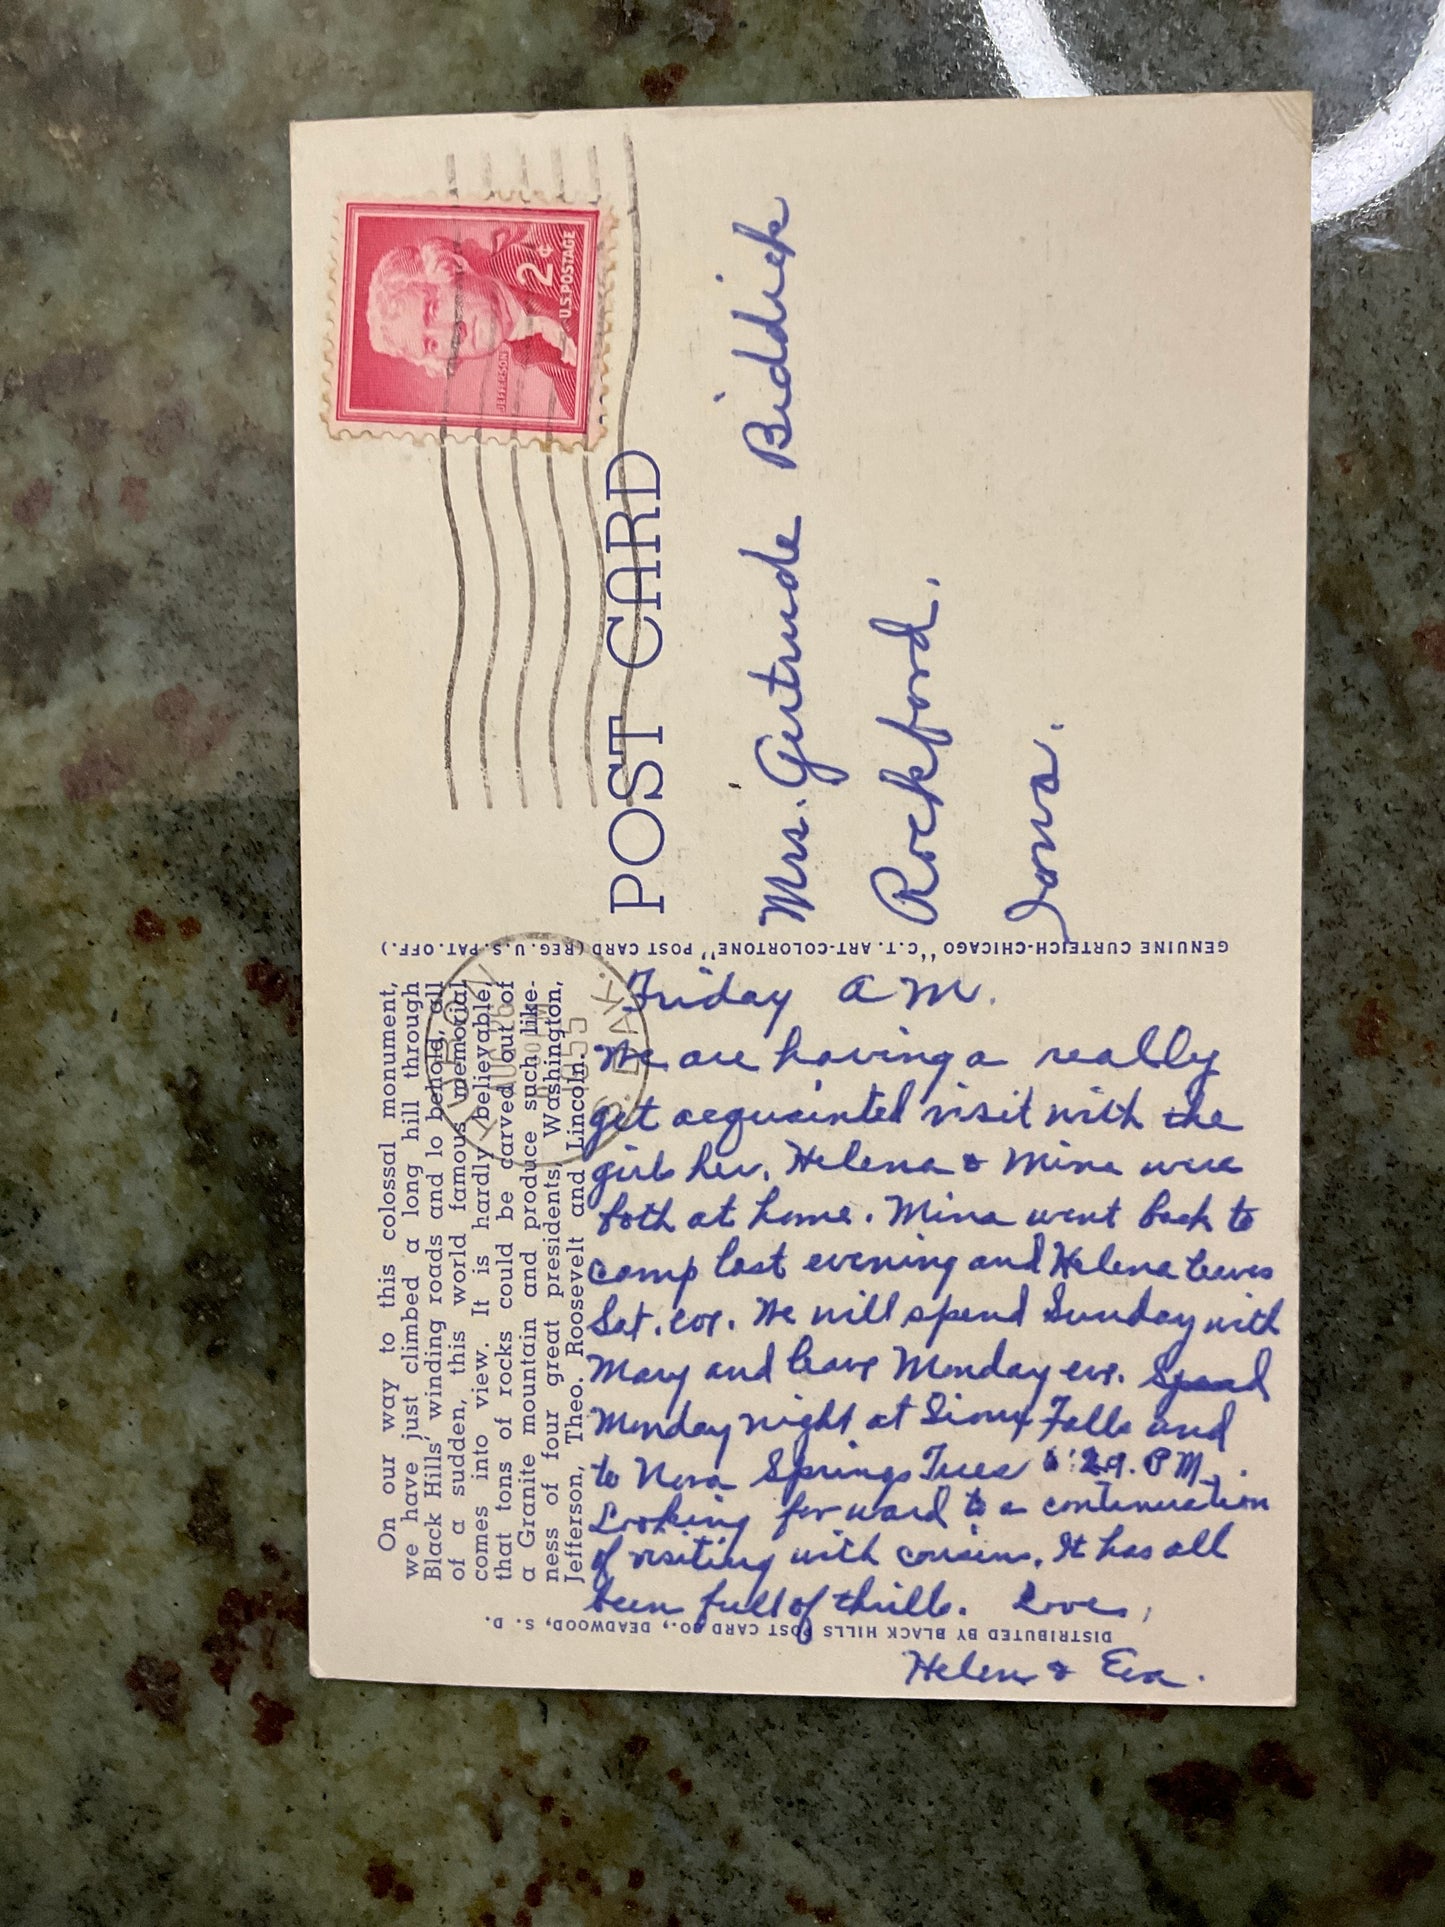 On our way to this colossal monument,
we have just climbed a long hill through
Black Hills' winding roads and lo behold, all
of a sudden, this world famous memorial
comes into view. It is hardly believable,
that tons of rocks could be carved out of
a Granite mountain and produce such like-
ness of four great presidents, Washington,
Jefferson, Theo. Roosevelt and Lincoln.
Friday A M.
We are having a really
get acquainted visit with the
girls her. Helena & Mina were
both at home. Mina went back to
camp last evening and Helena leaves
Sat. eve. We will spend Sunday with
Mary and leave Monday eve. Spend
Monday night at Sioux Falls and
to Nora Springs Tues PM.
Looking forward to a continuation
of visiting with cousins. It has all
been full of thrills. Loves,
Helen & Eva.
DISTRIBUTED BY BLACK HILLS POST CARD CO., DEADWOOD, S. D.
GENUINE CURTEICH-CHICAGO "C.T. ART-COLORTONE" POST CARD (REG. U.S. PAT. OFF.)
AUG 5
1955
S. DAK.
JEFFERSON
2¢
U.S. POSTAGE
POST CARD
Mrs. Gertrude Biddick
Rockford.
Iowa.